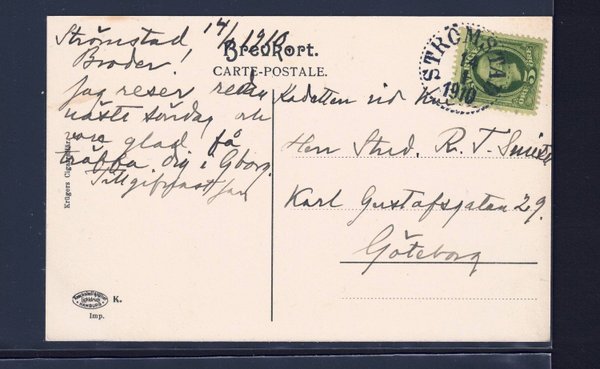 Strömstad 14/1 1910
Broder!
Jag reser redan
näste söndag o
vore glad få
träffa dig i Gborg.
Tillgifnast
Brevkort.
CARTE-POSTALE.
STRÖMSTAD
14
1
1910
5
Kadetten vid
Herr Stud. R. T.
Karl Gustafsgatan 29.
Göteborg
Krügers
HAMBURG
K.
Imp.